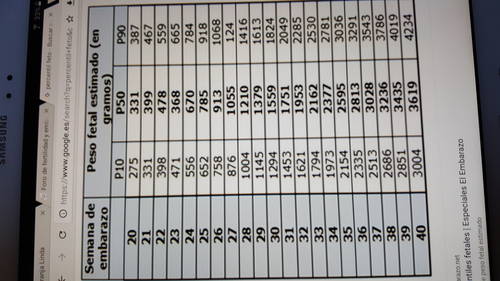 SAMSUNG
33%
ranja Linda
Foro de fertilidad y emb
percentil feto - Buscar
https://www.google.es/search?q=percentil+feto&c
Semana de embarazo Peso fetal estimado (en gramos)
P10 P50 P90
20 275 331 387
21 331 399 467
22 398 478 559
23 471 368 665
24 556 670 784
25 652 785 918
26 758 913 1068
27 876 1055 124
28 1004 1210 1416
29 1145 1379 1613
30 1294 1559 1824
31 1453 1751 2049
32 1621 1953 2285
33 1794 2162 2530
34 1973 2377 2781
35 2154 2595 3036
36 2335 2813 3291
37 2513 3028 3543
38 2686 3236 3786
39 2851 3435 4019
40 3004 3619 4234
arazo.net
ntiles fetales | Especiales El Embarazo
e peso fetal estimado